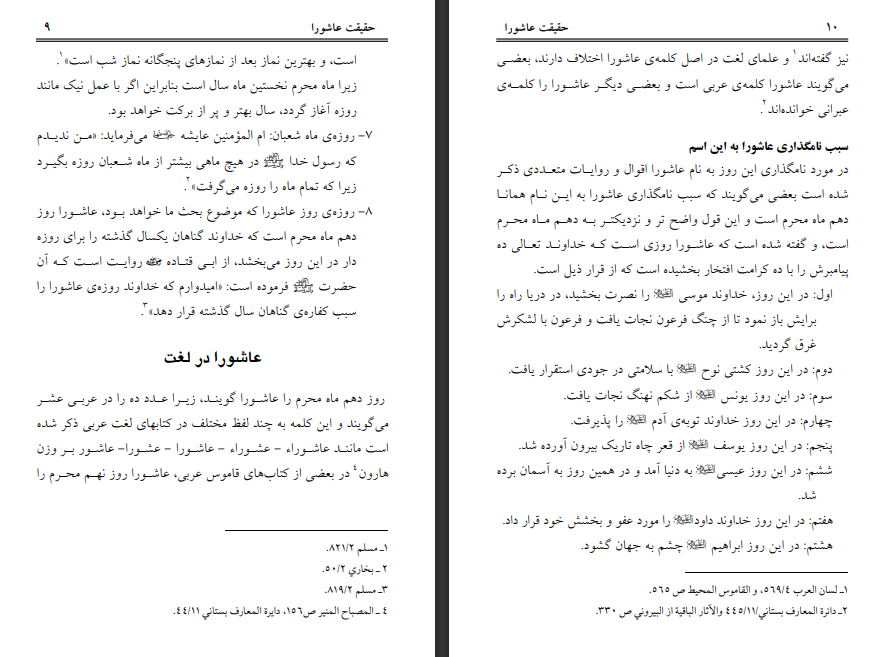 حقیقت عاشورا ۹
است، و بهترین نماز بعد از نمازهای پنجگانه نماز شب است»۱.
زیرا ماه محرم نخستین ماه سال است بنابراین اگر با عمل نیک مانند
روزه آغاز گردد، سال بهتر و پر از برکت خواهد بود.
۷- روزه‌ی ماه شعبان: ام المؤمنین عایشه می‌فرماید: «مـن ندیـدم
که رسول خدا ﷺ در هیچ ماهی بیشتر از ماه شـعبان روزه بگیـرد
زیرا که تمام ماه را روزه می‌گرفت»۲.
۸- روزه‌ی روز عاشورا که موضوع بحث ما خواهد بـود، عاشـورا روز
دهم ماه محرم است که خداوند گناهان یکسال گذشته را برای روزه
دار در این روز می‌بخشد، از ابـی قتـاده روایـت اسـت کـه آن
حضرت ﷺ فرموده است: «امیدوارم که خداوند روزه‌ی عاشورا را
سبب کفاره‌ی گناهان سال گذشته قرار دهد»۳.
عاشورا در لغت
روز دهم ماه محرم را عاشـورا گوینـد، زیـرا عـدد ده را در عربـی عشـر
می‌گویند و این کلمه به چند لفظ مختلف در کتابهای لغت عربی ذکر شده
است ماننـد عاشـوراء - عشـوراء - عاشـورا - عشـورا- عاشـور بـر وزن
هارون۴ در بعضی از کتاب‌های قاموس عربی، عاشـورا روز نهـم محـرم را
۱ـ مسلم ۸۲۱/۲.
۲ ـ بخاري ۵۰/۲.
۳ـ مسلم ۸۱۹/۲.
۴ ـ المصباح المنیر ص۱۵۶، دایرة المعارف بستاني ۴۴/۱۱.
۱۰ حقیقت عاشورا
نیز گفته‌اند۱ و علمای لغت در اصل کلمه‌ی عاشورا اختلاف دارند، بعضـی
می‌گویند عاشورا کلمه‌ی عربی است و بعضـی دیگـر عاشـورا را کلمـه‌ی
عبرانی خوانده‌اند۲.
سبب نامگذاری عاشورا به این اسم
در مورد نامگذاری این روز به نام عاشورا اقوال و روایـات متعـددی ذکـر
شده است بعضی می‌گویند که سبب نامگذاری عاشورا به ایـن نـام همانـا
دهم ماه محرم است و این قول واضح تر و نزدیکتـر بـه دهـم مـاه محـرم
است، و گفته شده است که عاشـورا روزی اسـت کـه خداونـد تعـالی ده
پیامبرش را با ده کرامت افتخار بخشیده است که از قرار ذیل است.
اول: در این روز، خداوند موسی را نصرت بخشید، در دریا راه را
برایش باز نمود تا از چنگ فرعون نجات یافت و فرعون با لشکرش
غرق گردید.
دوم: در این روز کشتی نوح با سلامتی در جودی استقرار یافت.
سوم: در این روز یونس از شکم نهنگ نجات یافت.
چهارم: در این روز خداوند توبه‌ی آدم را پذیرفت.
پنجم: در این روز یوسف از قعر چاه تاریک بیرون آورده شد.
ششم: در این روز عیسی به دنیا آمد و در همین روز به آسمان برده
شد.
هفتم: در این روز خداوند داود را مورد عفو و بخشش خود قرار داد.
هشتم: در این روز ابراهیم چشم به جهان گشود.
۱ـ لسان العرب ۵۶۹/۴، و القاموس المحیط ص ۵۶۵.
۲ـ دائرة المعارف بستاني/۴۴۵/۱۱ والآثار الباقیة از البیروني ص ۳۳۰.